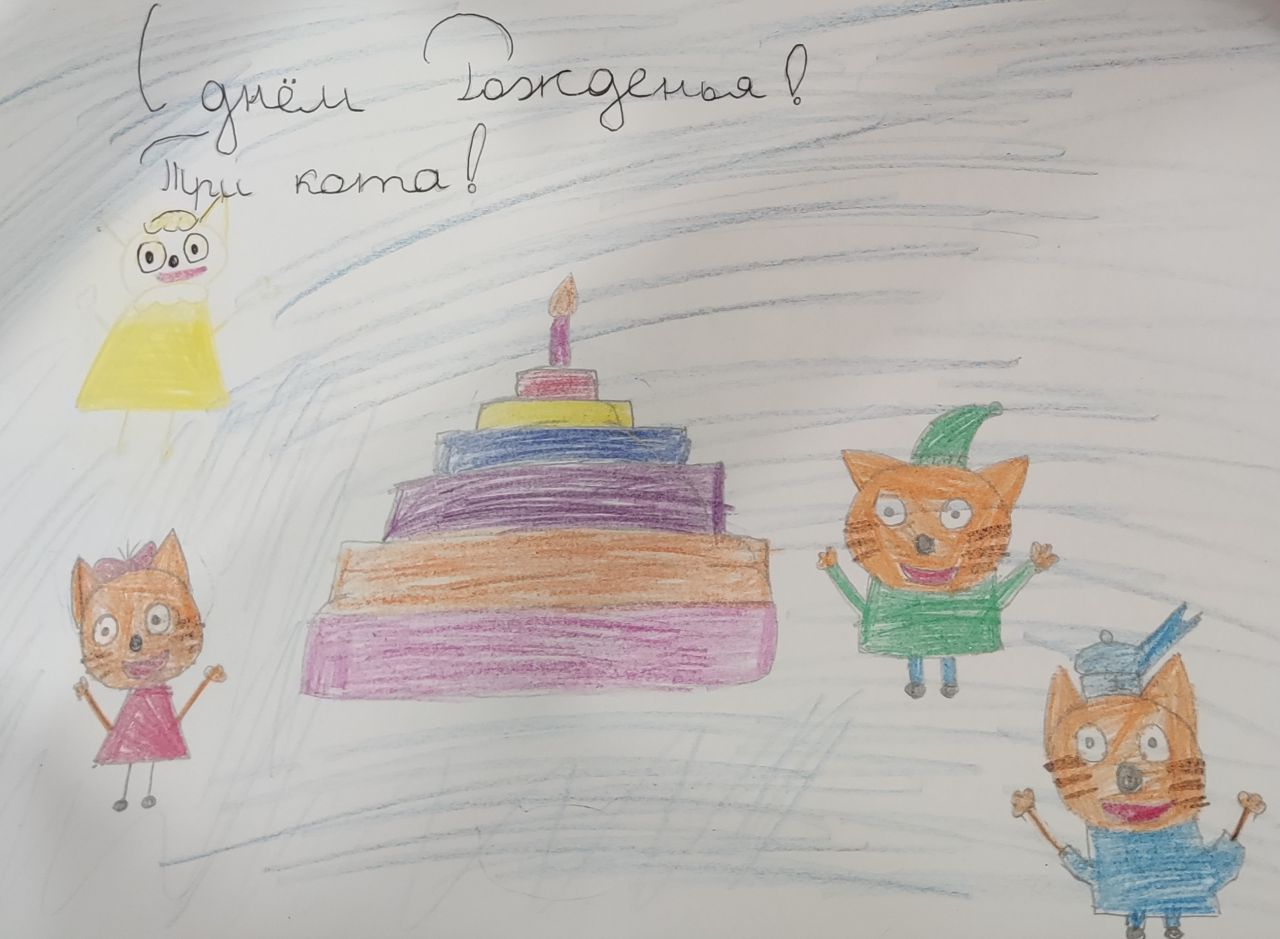 С днём Рожденья!
Три кота!